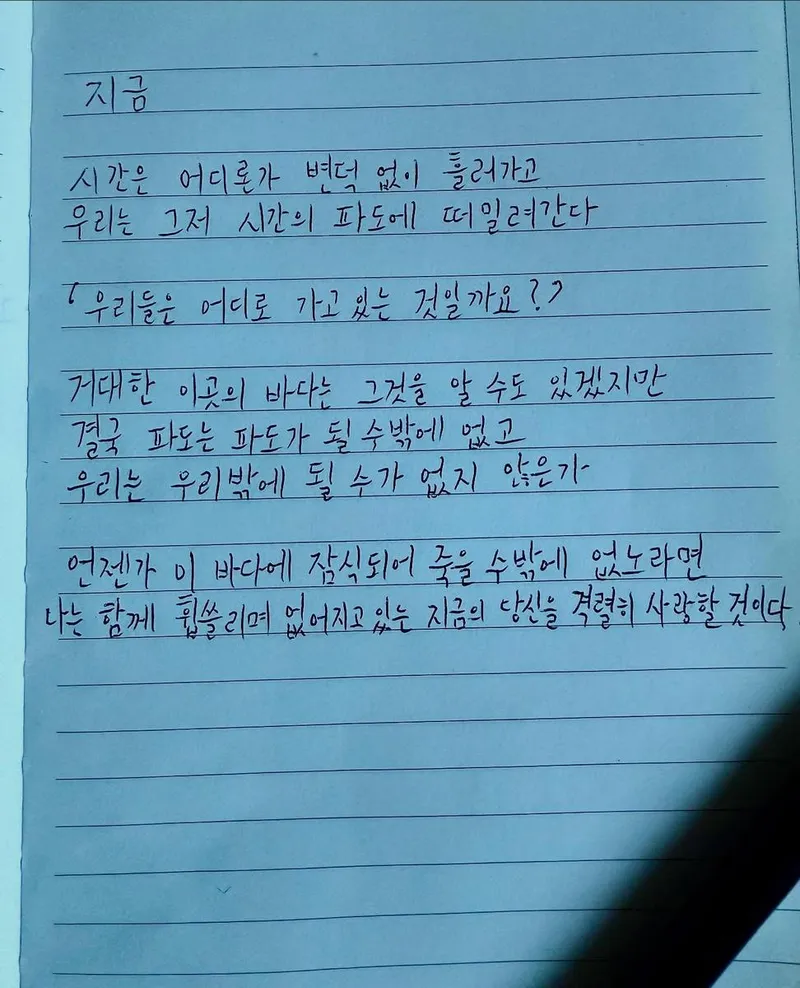 지금
시간은 어디론가 변덕 없이 흘러가고
우리는 그저 시간의 파도에 떠밀려간다
‘우리들은 어디로 가고 있는 것일까요?’
거대한 이곳의 바다는 그것을 알 수도 있겠지만
결국 파도는 파도가 될 수밖에 없고
우리는 우리밖에 될 수가 없지 않은가
언젠가 이 바다에 잠식되어 죽을 수밖에 없노라면
나는 함께 휩쓸리며 없어지고 있는 지금의 당신을 격렬히 사랑할 것이다.